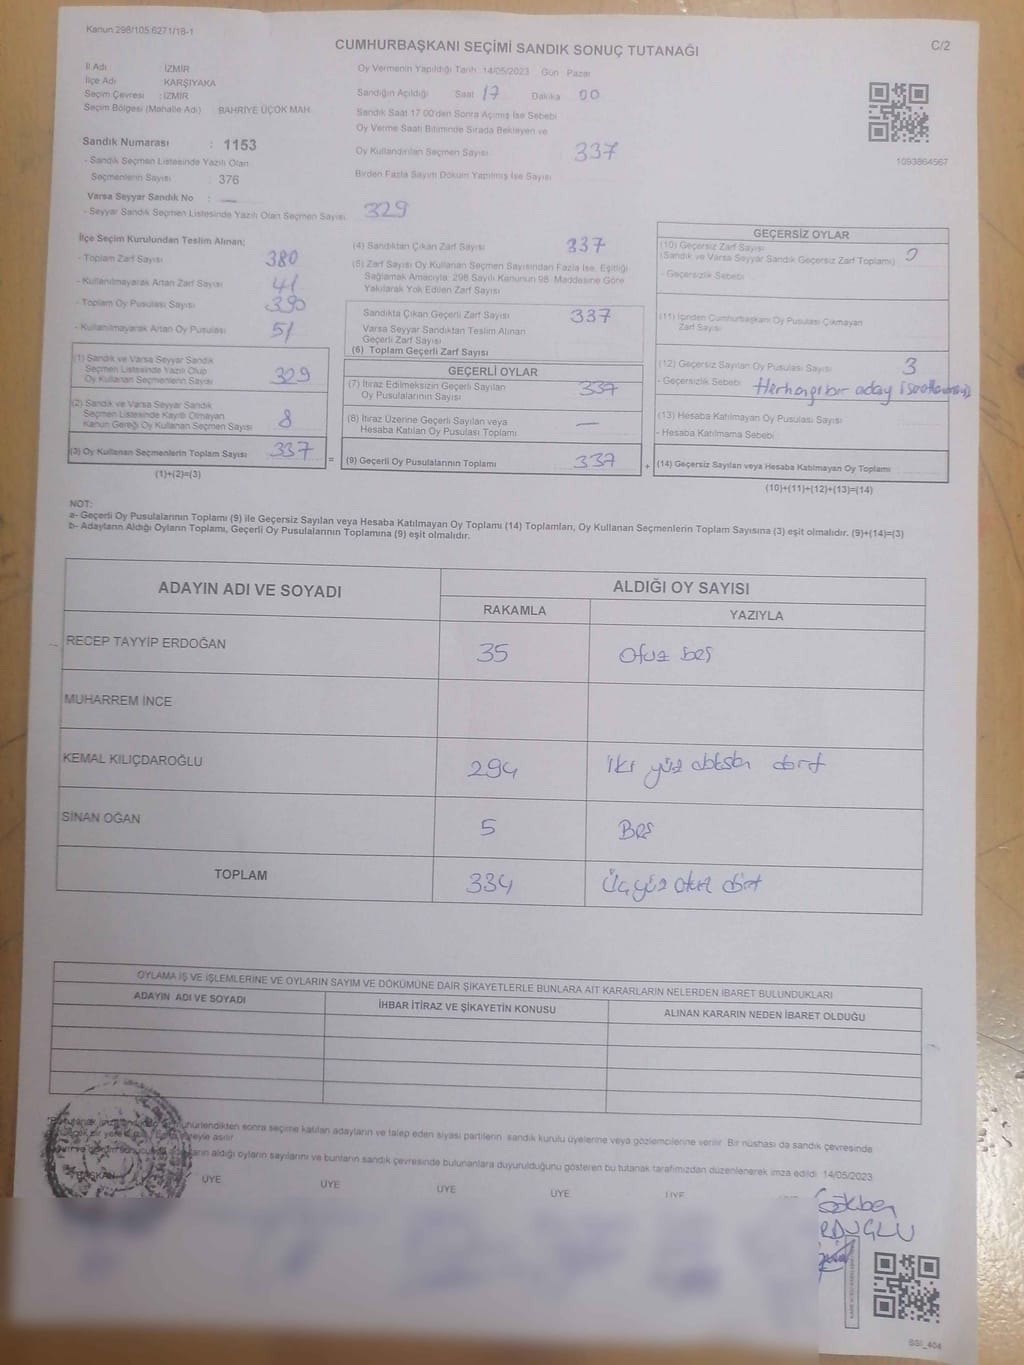 Kanun 298/105 6271/18-1
C/2
CUMHURBAŞKANI SEÇİMİ SANDIK SONUÇ TUTANAĞI
İl Adı İZMİR
İlçe Adı KARŞIYAKA
Seçim Çevresi : İZMİR
Seçim Bölgesi (Mahalle Adı) BAHRİYE ÜÇOK MAH.
Oy Vermenin Yapıldığı Tarih 14/05/2023 Gün Pazar
Sandığın Açıldığı Saat 17 Dakika 00
Sandık Saat 17 00'den Sonra Açımış İse Sebebi
Oy Verme Saati Bitiminde Sırada Bekleyen ve
Oy Kullandırılan Seçmen Sayısı 337
Birden Fazla Sayım Döküm Yapılmış İse Sayısı
1093864567
Sandık Numarası : 1153
- Sandık Seçmen Listesinde Yazılı Olan
Seçmenlerin Sayısı : 376
Varsa Seyyar Sandık No : —
- Seyyar Sandık Seçmen Listesinde Yazılı Olan Seçmen Sayısı 329
İlçe Seçim Kurulundan Teslim Alınan;
- Toplam Zarf Sayısı 380
- Kullanılmayarak Artan Zarf Sayısı 41
- Toplam Oy Pusulası Sayısı 390
- Kullanılmayarak Artan Oy Pusulası 51
(1) Sandık ve Varsa Seyyar Sandık
Seçmen Listesinde Yazılı Olup
Oy Kullanan Seçmenlerin Sayısı 329
(2) Sandık ve Varsa Seyyar Sandık
Seçmen Listesinde Kayıtlı Olmayan
Kanun Gereği Oy Kullanan Seçmen Sayısı 8
(3) Oy Kullanan Seçmenlerin Toplam Sayısı 337
(1)+(2)=(3)
=
(4) Sandıktan Çıkan Zarf Sayısı 337
(5) Zarf Sayısı Oy Kullanan Seçmen Sayısından Fazla İse, Eşitliği
Sağlamak Amacıyla, 298 Sayılı Kanunun 98. Maddesine Göre
Yakılarak Yok Edilen Zarf Sayısı
Sandıkta Çıkan Geçerli Zarf Sayısı 337
Varsa Seyyar Sandıktan Teslim Alınan
Geçerli Zarf Sayısı
(6) Toplam Geçerli Zarf Sayısı
GEÇERLİ OYLAR
(7) İtiraz Edilmeksizin Geçerli Sayılan
Oy Pusulalarının Sayısı 337
(8) İtiraz Üzerine Geçerli Sayılan veya
Hesaba Katılan Oy Pusulası Toplamı —
(9) Geçerli Oy Pusulalarının Toplamı 337
+
GEÇERSİZ OYLAR
(10) Geçersiz Zarf Sayısı
(Sandık ve Varsa Seyyar Sandık Geçersiz Zarf Toplamı)
- Geçersizlik Sebebi
(11) İçinden Cumhurbaşkanı Oy Pusulası Çıkmayan
Zarf Sayısı
(12) Geçersiz Sayılan Oy Pusulası Sayısı 3
- Geçersizlik Sebebi Herhangi bir aday
(13) Hesaba Katılmayan Oy Pusulası Sayısı
- Hesaba Katılmama Sebebi
(14) Geçersiz Sayılan veya Hesaba Katılmayan Oy Toplamı
(10)+(11)+(12)+(13)=(14)
NOT:
a- Geçerli Oy Pusulalarının Toplamı (9) ile Geçersiz Sayılan veya Hesaba Katılmayan Oy Toplamı (14) Toplamları, Oy Kullanan Seçmenlerin Toplam Sayısına (3) eşit olmalıdır. (9)+(14)=(3)
b- Adayların Aldığı Oyların Toplamı, Geçerli Oy Pusulalarının Toplamına (9) eşit olmalıdır.
ADAYIN ADI VE SOYADI ALDIĞI OY SAYISI
RAKAMLA YAZIYLA
RECEP TAYYİP ERDOĞAN 35 Otuz beş
MUHARREM İNCE
KEMAL KILIÇDAROĞLU 294 iki yüz doksan dört
SİNAN OĞAN 5 Beş
TOPLAM 334 Üçyüz otuz dört
OYLAMA İŞ VE İŞLEMLERİNE VE OYLARIN SAYIM VE DÖKÜMÜNE DAİR ŞİKAYETLERLE BUNLARA AİT KARARLARIN NELERDEN İBARET BULUNDUKLARI
ADAYIN ADI VE SOYADI İHBAR İTİRAZ VE ŞİKAYETİN KONUSU ALINAN KARARIN NEDEN İBARET OLDUĞU
sonra seçime katılan adayların ve talep eden siyasi partilerin sandık kurulu üyelerine veya gözlemcilerine verilir. Bir nüshası da sandık çevresinde
asılır
aldığı oyların sayılarını ve bunların sandık çevresinde bulunanlara duyurulduğunu gösteren bu tutanak tarafımızdan düzenlenerek imza edildi 14/05/2023
BAŞKAN ÜYE ÜYE ÜYE ÜYE ÜYE
Gökben
SSI_404